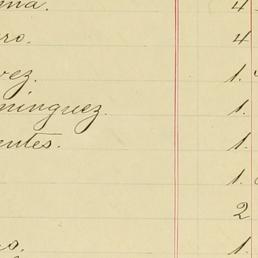 na. 4
ro. 4
vez. 1.
minguez. 1.
entes. 1.
1.
2
o. 1.